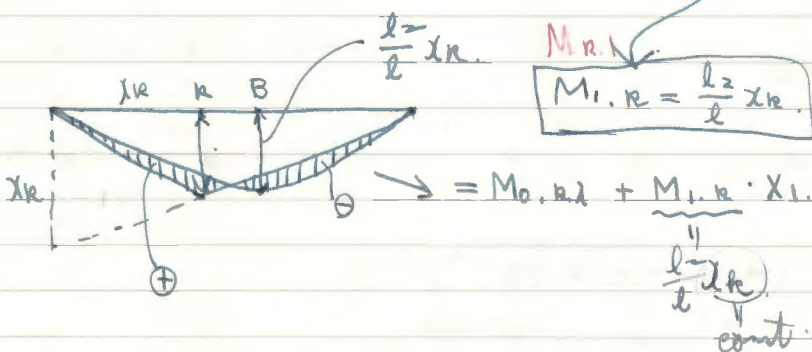 l₂/l xₖ.
Mₖ.λ
M₁.ₖ = l₂/l xₖ.
xₖ k B
xₖ = M₀.ₖλ + M₁.ₖ · X₁.
⊕ ⊖
l₂/l xₖ
const.